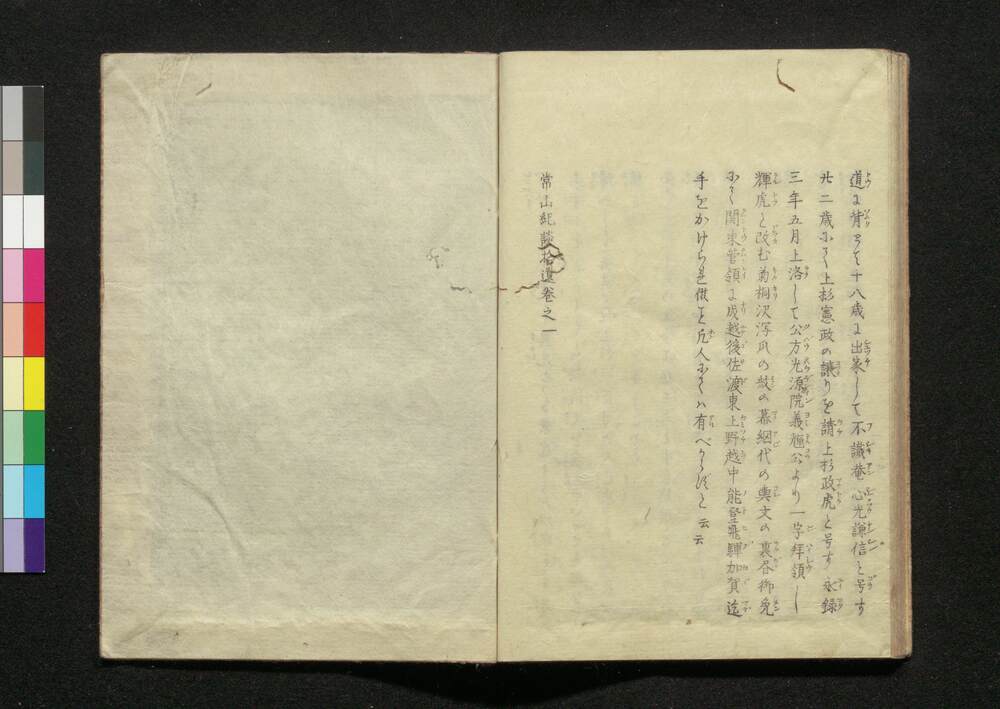 道に背りそ十八歳に出家して不識菴心光謙信と号す
廿二歳にて上杉憲政の譲りを請上杉政虎と号す永録
三年五月上洛して公方光源院義輝公より一字拝領し
輝虎と改む菊桐沢瀉爪の紋の幕網代の輿文の裏呑御免
にて関東管領に成越後佐渡東上野越中能登飛騨加賀迄
手をかけられ候を凡人にては有べからずと云云
常山紀談拾遺巻之一